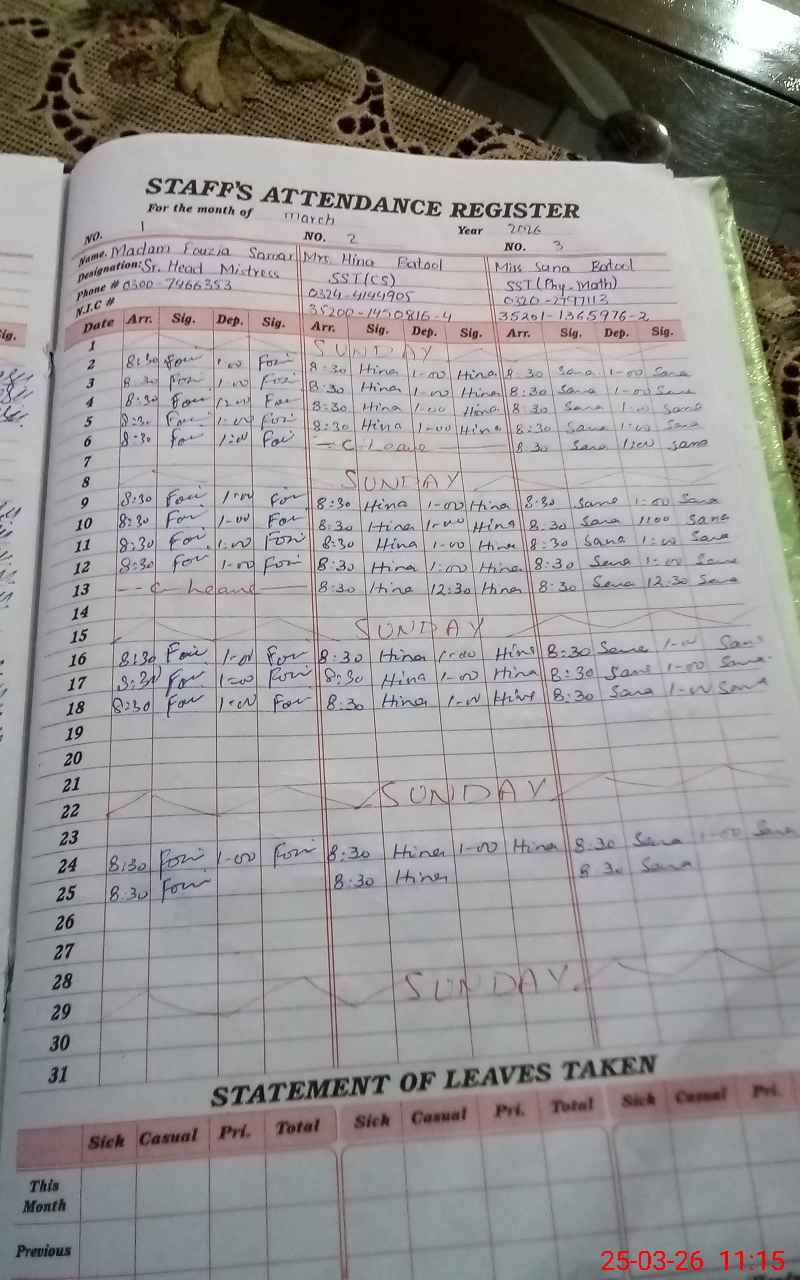 STAFF'S ATTENDANCE REGISTER
For the month of March Year 2026
NO. 1 NO. 2 NO. 3
Name. Madam Fouzia Samar Mrs. Hina Batool Miss Sana Batool
Designation: Sr. Head Mistress SST(CS) SST(Phy-Math)
Phone # 0300-7466353 0324-4144905 0320-2797113
N.I.C # 35200-1450816-4 35201-1365976-2
Date Arr. Sig. Dep. Sig. Arr. Sig. Dep. Sig. Arr. Sig. Dep. Sig.
1 SUNDAY
2 8:30 Fou 1-00 Fozi 8:30 Hina 1-00 Hina 8:30 Sana 1-00 Sana
3 8:30 Fozi 1-00 Fozi 8:30 Hina 1-00 Hina 8:30 Sana 1-00 Sana
4 8:30 Fou 12:00 Fou 8:30 Hina 1-00 Hina 8:30 Sana 1:00 Sana
5 8:30 Fou 1:00 Fozi 8:30 Hina 1-00 Hina 8:30 Sana 1:00 Sana
6 8:30 Fou 1:00 Foui - C-Leave - 8:30 Sana 1:00 Sana
7
8 SUNDAY
9 8:30 Foui 1-00 Foui 8:30 Hina 1-00 Hina 8:30 Sana 1:00 Sana
10 8:30 Foui 1-00 Fou 8:30 Hina 1-00 Hina 8:30 Sana 1:00 Sana
11 8:30 Fou 1:00 Fozi 8:30 Hina 1-00 Hina 8:30 Sana 1:00 Sana
12 8:30 Fou 1-00 Fozi 8:30 Hina 1:00 Hina 8:30 Sana 1:00 Sana
13 - - C-Leave - 8:30 Hina 12:30 Hina 8:30 Sana 12:30 Sana
14
15 SUNDAY
16 8:30 Foui 1-00 Fou 8:30 Hina 1-00 Hina 8:30 Sana 1-00 Sana
17 8:30 Fou 1:00 Fozi 8:30 Hina 1-00 Hina 8:30 Sana 1-00 Sana
18 8:30 Fou 1:00 Fou 8:30 Hina 1-00 Hina 8:30 Sana 1-00 Sana
19
20
21
22 SUNDAY
23
24 8:30 Fozi 1-00 Fozi 8:30 Hina 1-00 Hina 8:30 Sana 1-00 Sana
25 8:30 Fozi 8:30 Hina 8:30 Sana
26
27
28
29 SUNDAY.
30
31
STATEMENT OF LEAVES TAKEN
Sick Casual Pri. Total Sick Casual Pri. Total Sick Casual Pri.
This Month
Previous
25-03-26 11:15